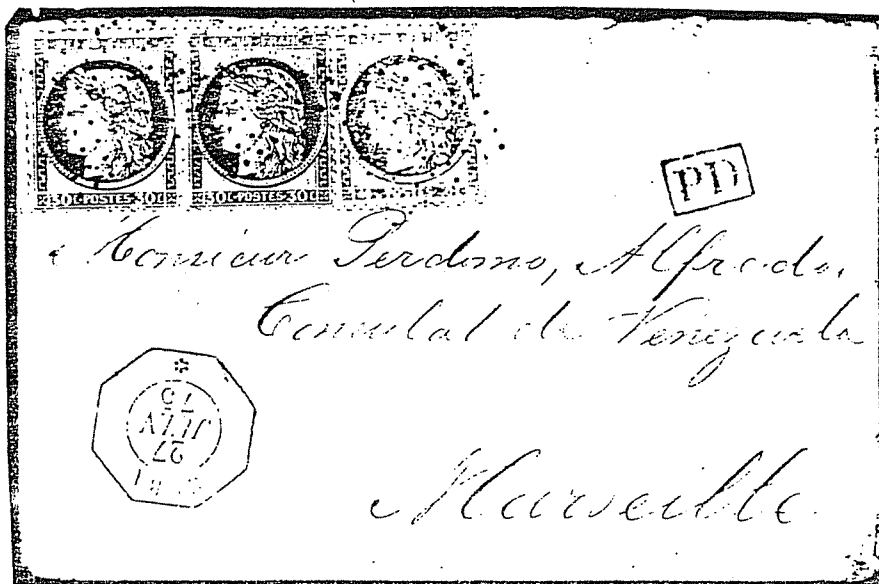 30C·POSTES·30C 30C·POSTES·30C
PD
Monsieur Perdomo, Alfredo,
Consulat de Venezuela
Marseille
*
75
27